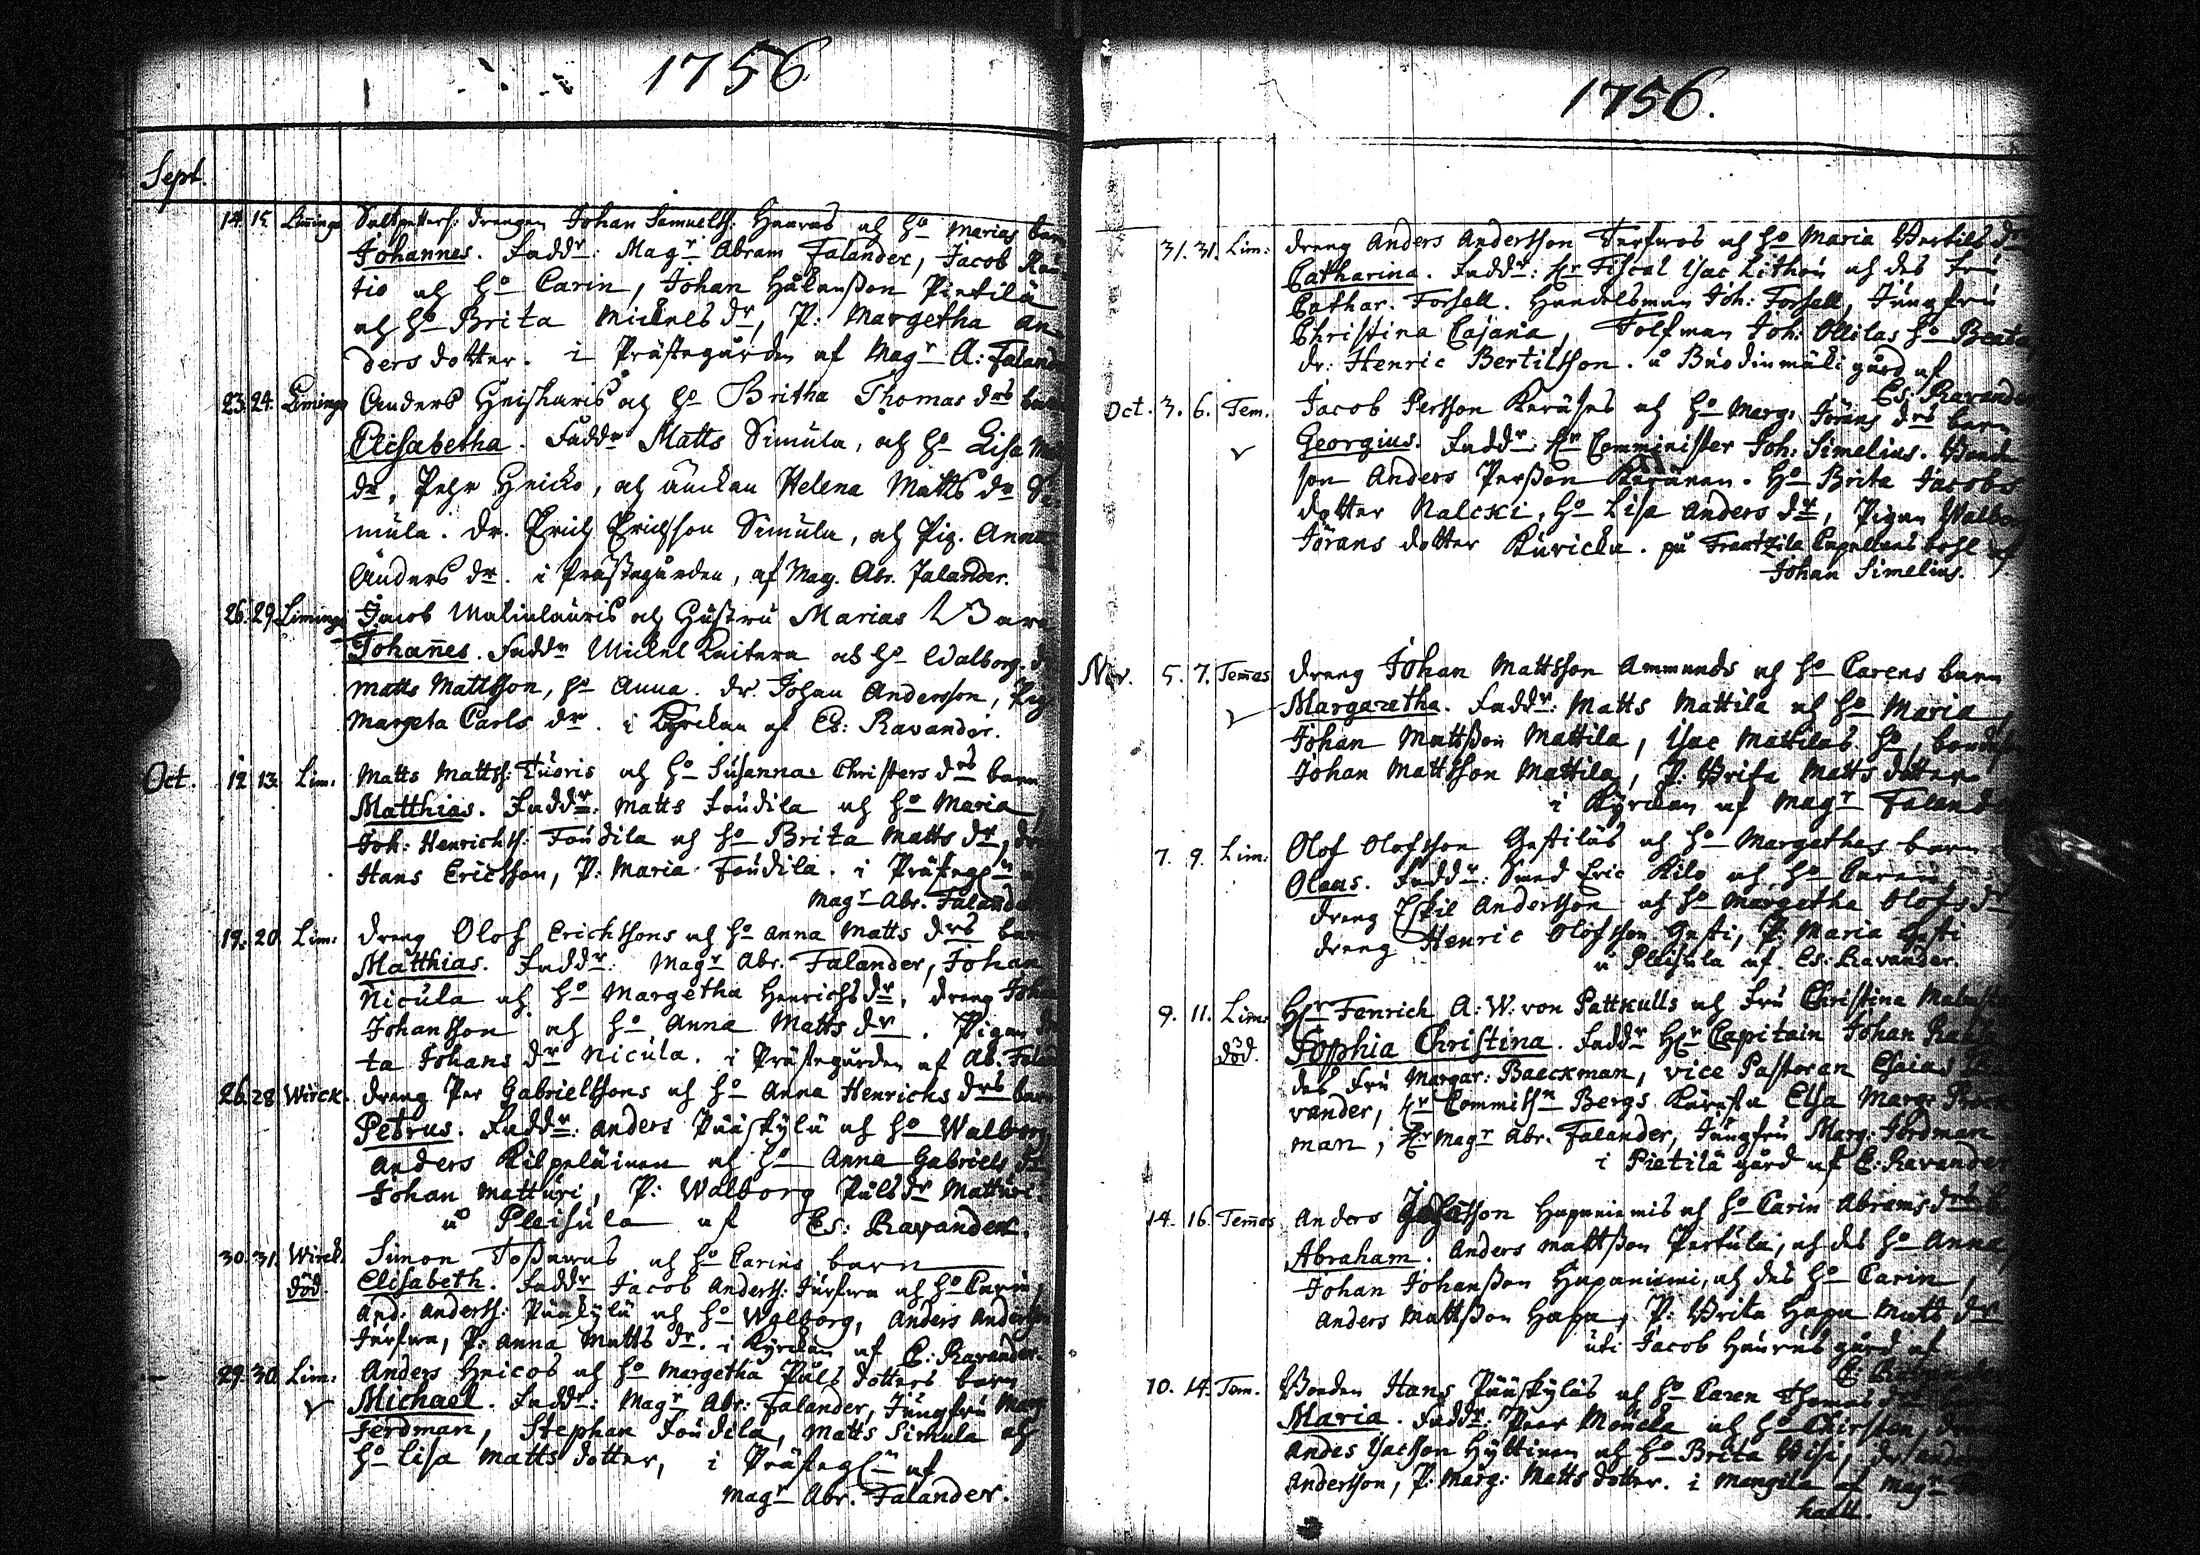 1756
Sept.
14. 15. Liminge Saltpetters: drengen Johan Samuelss: Haaras och ho Marias barn
Johannes. Faddr: Magr Abram Falander, Jacob
tio och ho Carin, Johan Håkanßon Pietilä
och ho Brita Mickels dr, P: Margetha An
ders dotter. i Prästegården af Magr A: Faland
23. 24. Liminge Anders Heiskaris och ho Britha Thomas drs barn
Elisabetha. Faddr Matts Simula, och ho Lisa
dr, Pehr Heicko, och änckan Helena Matts dr Si
mula. Dr. Erich Erichsson Simula, och Pig. Anna
Anders dr. i Prästegården, af Mag. Abr. Falander.
26. 29. Liminge Jacob Malinlauris och Hustru Marias Barn
Johan̄es. Faddr Mickel Laitera och ho Walborg.
Matts Mattsson, ho Anna. dr. Johan Andersson, Pig
Margeta Carls dr. i Kyrckan af Es: Ravander.
Oct. 12. 13. Lim. Matts Mattss: Tuoris och ho Susannas Christers drs barn
Matthias. Faddr: Matts Foudila och ho Maria
Joh: Henrichss: Foudila och ho Brita Matts dr,
Hans Ericsson, P: Maria Foudila. i Prästeg
Magr Abr. Falander
19. 20. Lim: dreng Olof Erichssons och ho Anna Matts drs barn
Matthias. Faddr: Magr Abr. Falander, Johan
Nicula och ho Margetha Henrichs dr, dreng Joh
Johansson och ho Anna Matts dr. Pigan
ta Johans dr Nicula. i Prästegården af Ab. Faland
26. 28. Wirck. dreng Per Gabrielssons och ho Anna Henrichs drs barn
Petrus. Faddr: Anders Pääskylä och ho Walborg
Anders Kilpeläinen och ho Anna Gabriels dr
Johan Matturi, P: Walborg Påls dr Matturi.
å Pleisula af Es: Ravander.
30. 31. Wirck. Simon Toßavas och ho Carins barn
död. Elisabeth. Faddr Jacob Anderss: Turfwa och ho Carin,
And: Anderss: Pääskylä och ho Walborg, Anders Anderss
Turfwa, P: Anna Matts dr. i Kyrckan af E: Ravander.
29. 30. Lim: Anders Heicos och ho Margetha Påls dotters barn
Michael. Faddr: Magr Abr: Falander, Jungfru Marg
Ferdman, Stephan Foudila, Matts Simula och
ho Lisa Matts dotter, i Prästeg af
Magr Abr. Falander.
1756.
31. 31. Lim: dreng Anders Andersson Turfwas och ho Maria Bertils dr
Catharina. Faddr: Hr Fiscal Isac Lithou och des Fru
Cathar. Forsell. Handelsman Joh: Forsell, Jungfru
Christina Cajana, Tolfman Joh: Ollilas ho Beata
dr: Henric Bertilsson. å gård af
Es: Ravander
Oct. 3. 6. Tem. Jacob Persson Keräses och ho Marg: Jörans drs barn
Georgius. Faddr: Hr Comminister Joh: Simelius. Bonde
son Anders Perßon Keränen. Ho Brita Jacobs
dotter Nalcki, ho Lisa Anders dr, Pigan Walbor
Jörans dotter Kuricka. på Frantzila Capellans bohl af
Johan Simelius.
Nov. 5. 7. Tem̄es dreng Johan Mattsson Ammunds och ho Carens barn
Margaretha. Faddr: Matts Mattila och ho Maria,
Johan Mattßon Mattila, Isac Mattilas ho, bondes
Johan Mattsson Mattila, P: Brita Matts dotter
i Kyrckan af Magr Faland
7. 9. Lim: Olof Olofsson Gestiläs och ho Margethes barn
Olaus. Faddr: Smed Eric Kilo och ho Carin
dreng Eskil Andersson och ho Margetha Olofs dr
dreng Henric Olofsson Gesti, P: Maria Gesti
å Pleisula af Es: Ravander.
9. 11. Lim: Hr Fenrich A: W: von Pattkulls och Fru Christina
död. Sophia Christina. Faddr Hr Capitain Johan
des Fru Margar: Baeckman, vice Pastoren Esaias Ra
vander, Hr Bergs Elsa Marg:
man, Hr Magr Abr. Falander, Jungfru Marg: Ferdman
i Pietilä gård af E: Ravander
14. 16. Tem̄es Anders Hapaniemis och ho Carin Abrams drs b
Abraham. Anders Mattßon Pertula, och des ho Anna,
Johan Johanßon Hapaniemi, och des ho Carin,
Anders Mattßon Hapa, P: Brita Hapa Matts dr
uti Jacob gård af
E: Ravander
10. 14. Tem. Bonden Hans Pääskyläs och ho Caren Thomas
Maria. Faddr: Peer Moucka och ho Chirsten,
Andes Isacsson Hyttinen och ho Brita
Andersson, P: Marg: Matts dotter. i Mangila af Magr
haell.